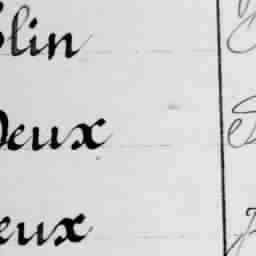 lin
Deux
eux